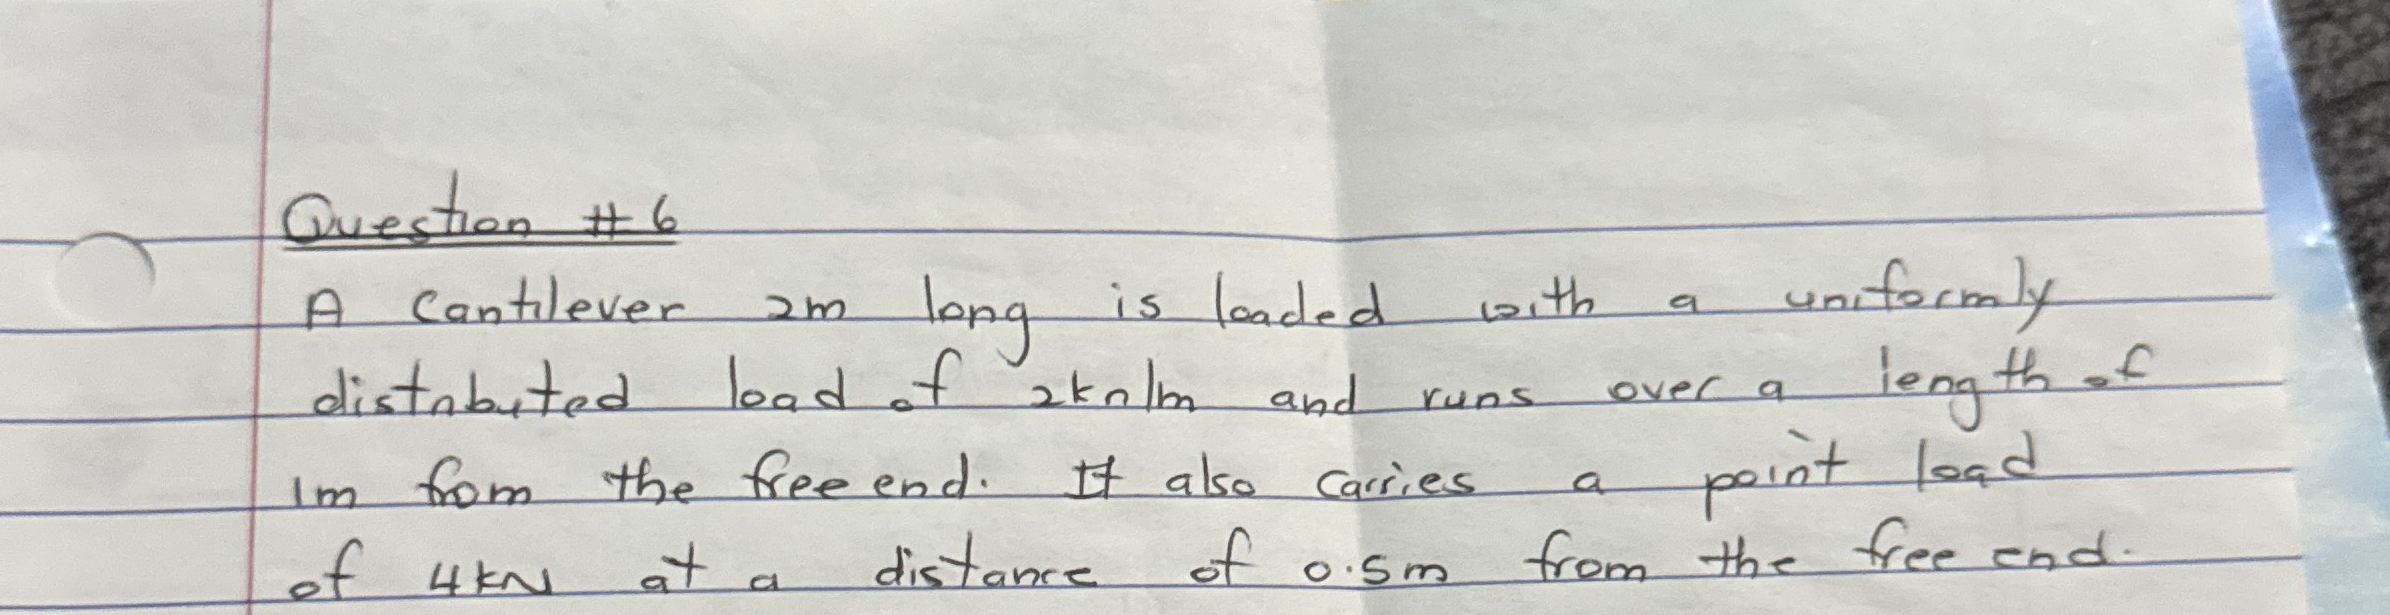 Question #6
A cantilever 2m long is loaded with a uniformly
distributed load of 2kn/m and runs over a length of
1m from the free end. It also carries a point load
of 4kN at a distance of 0.5m from the free end.